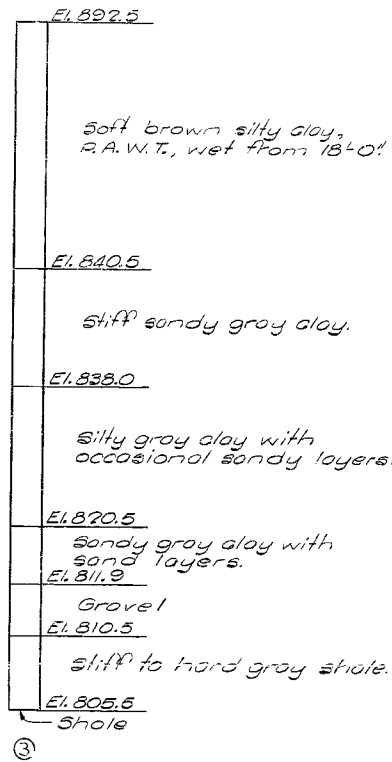 El. 892.5
Soft brown silty clay,
P.A.W.T., wet from 18'-0".
El. 840.5
Stiff sandy gray clay.
El. 838.0
Silty gray clay with
occasional sandy layers.
El. 820.5
Sandy gray clay with
sand layers.
El. 811.9
Gravel
El. 810.5
Stiff to hard gray shale.
El. 805.5
Shale
3